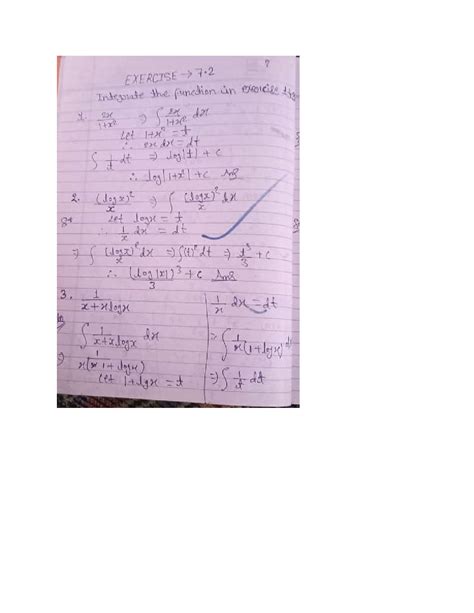 ?
EXERCISE → 7.2
Integrate the function in exercise
1. 2x/1+x² ⇒ ∫ 2x/1+x² dx
Let 1+x² = t
∴ 2x dx = dt
∫ 1/t dt ⇒ log|t| + c
∴ log|1+x²| + c Ans
2. (logx)²/x ⇒ ∫ (logx)²/x dx
Let logx = t
∴ 1/x dx = dt
⇒ ∫ (logx)²/x dx ⇒ ∫(t)² dt ⇒ t³/3 + c
∴ (log|x|)³/3 + c Ans
3. 1/x+xlogx
∫ 1/x+xlogx dx
1/x(1+logx)
Let 1+logx = t
1/x dx = dt
⇒ ∫ 1/x(1+logx) dx
⇒ ∫ 1/t dt